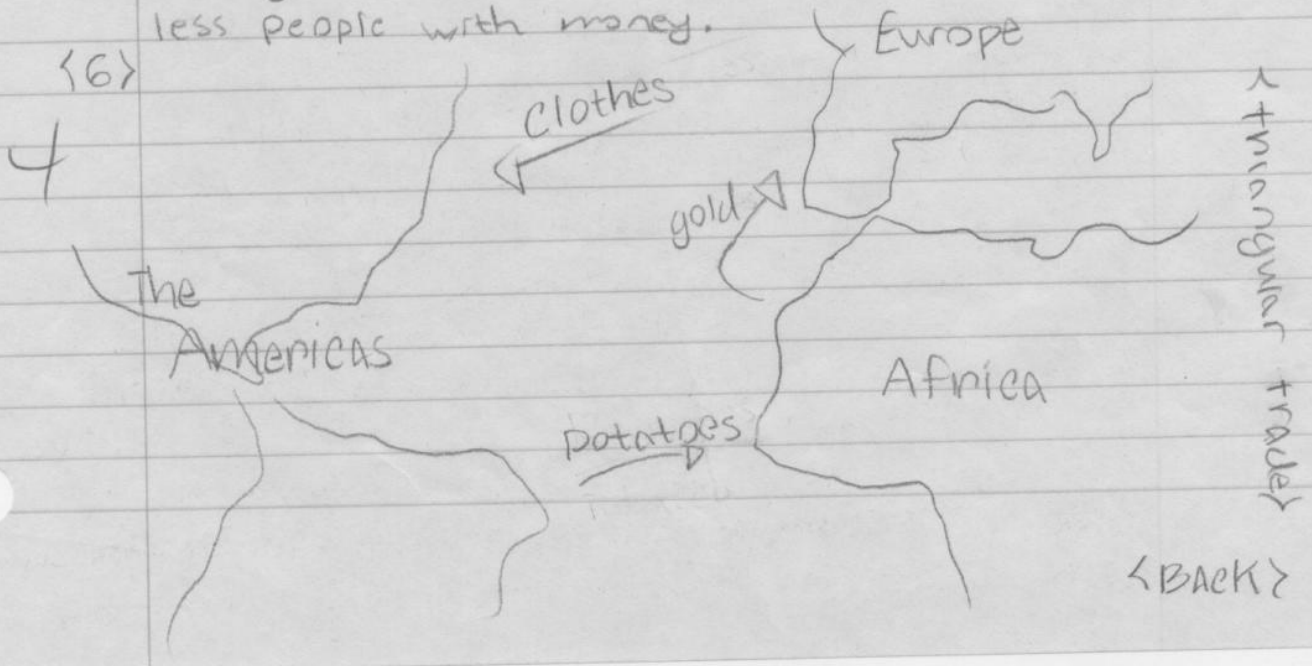 less people with money.
<6>
4
Europe
Clothes
gold
The
Americas
Africa
potatoes
<triangular trade>
<BACK>